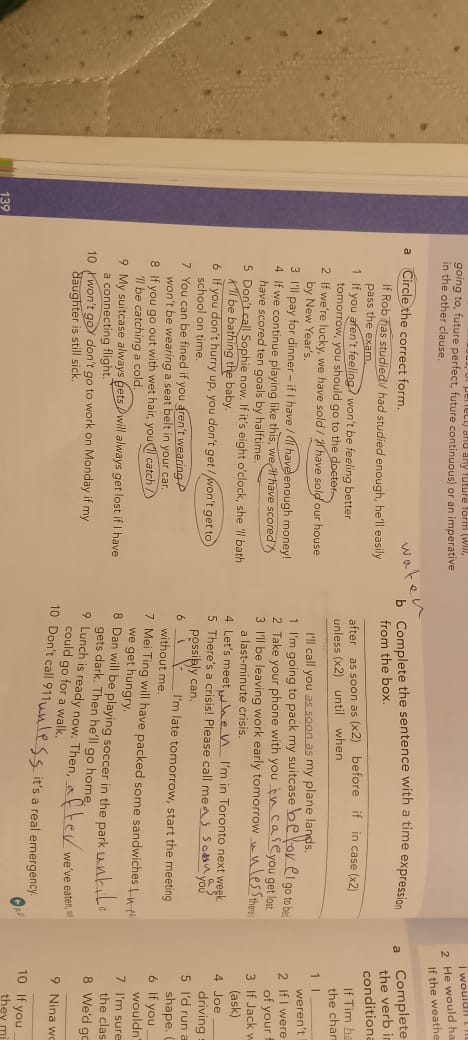 going to, future perfect, future continuous) or an imperative
in the other clause.
a Circle the correct form.
If Rob has studied / had studied enough, he'll easily
pass the exam.
1 If you aren't feeling / won't be feeling better
tomorrow, you should go to the doctor.
2 If we're lucky, we have sold / 'll have sold our house
by New Year's.
3 I'll pay for dinner – if I have / 'll have enough money!
4 If we continue playing like this, we 'll have scored /
have scored ten goals by halftime.
5 Don't call Sophie now. If it's eight o'clock, she 'll bath
/ 'll be bathing the baby.
6 If you don't hurry up, you don't get / won't get to
school on time.
7 You can be fined if you aren't wearing /
won't be wearing a seat belt in your car.
8 If you go out with wet hair, you 'll catch /
'll be catching a cold.
9 My suitcase always gets / will always get lost if I have
a connecting flight.
10 I won't go / don't go to work on Monday if my
daughter is still sick.
139
water
b Complete the sentence with a time expression
from the box.
after as soon as (x2) before if in case (x2)
unless (x2) until when
I'll call you as soon as my plane lands.
1 I'm going to pack my suitcase before I go to bed
2 Take your phone with you in case you get lost.
3 I'll be leaving work early tomorrow unless there
a last-minute crisis.
4 Let's meet when I'm in Toronto next week.
5 There's a crisis! Please call me as soon as you
possibly can.
6 if I'm late tomorrow, start the meeting
without me.
7 Mei Ting will have packed some sandwiches
we get hungry.
8 Dan will be playing soccer in the park until it
gets dark. Then he'll go home.
9 Lunch is ready now. Then, after we've eaten,
could go for a walk.
10 Don't call 911 unless it's a real emergency.
I wouldn't
2 He would ha
If the weathe
a Complete
the verb in
condition
If Tim
the char
1 I
weren't
2 If I were
of your
3 If Jack w
(ask)
4 Joe
driving
5 I'd run a
shape. (
6 If you
wouldn'
7 I'm sure
the clas
8 We'd go
9 Nina wo
10 If you
they mi